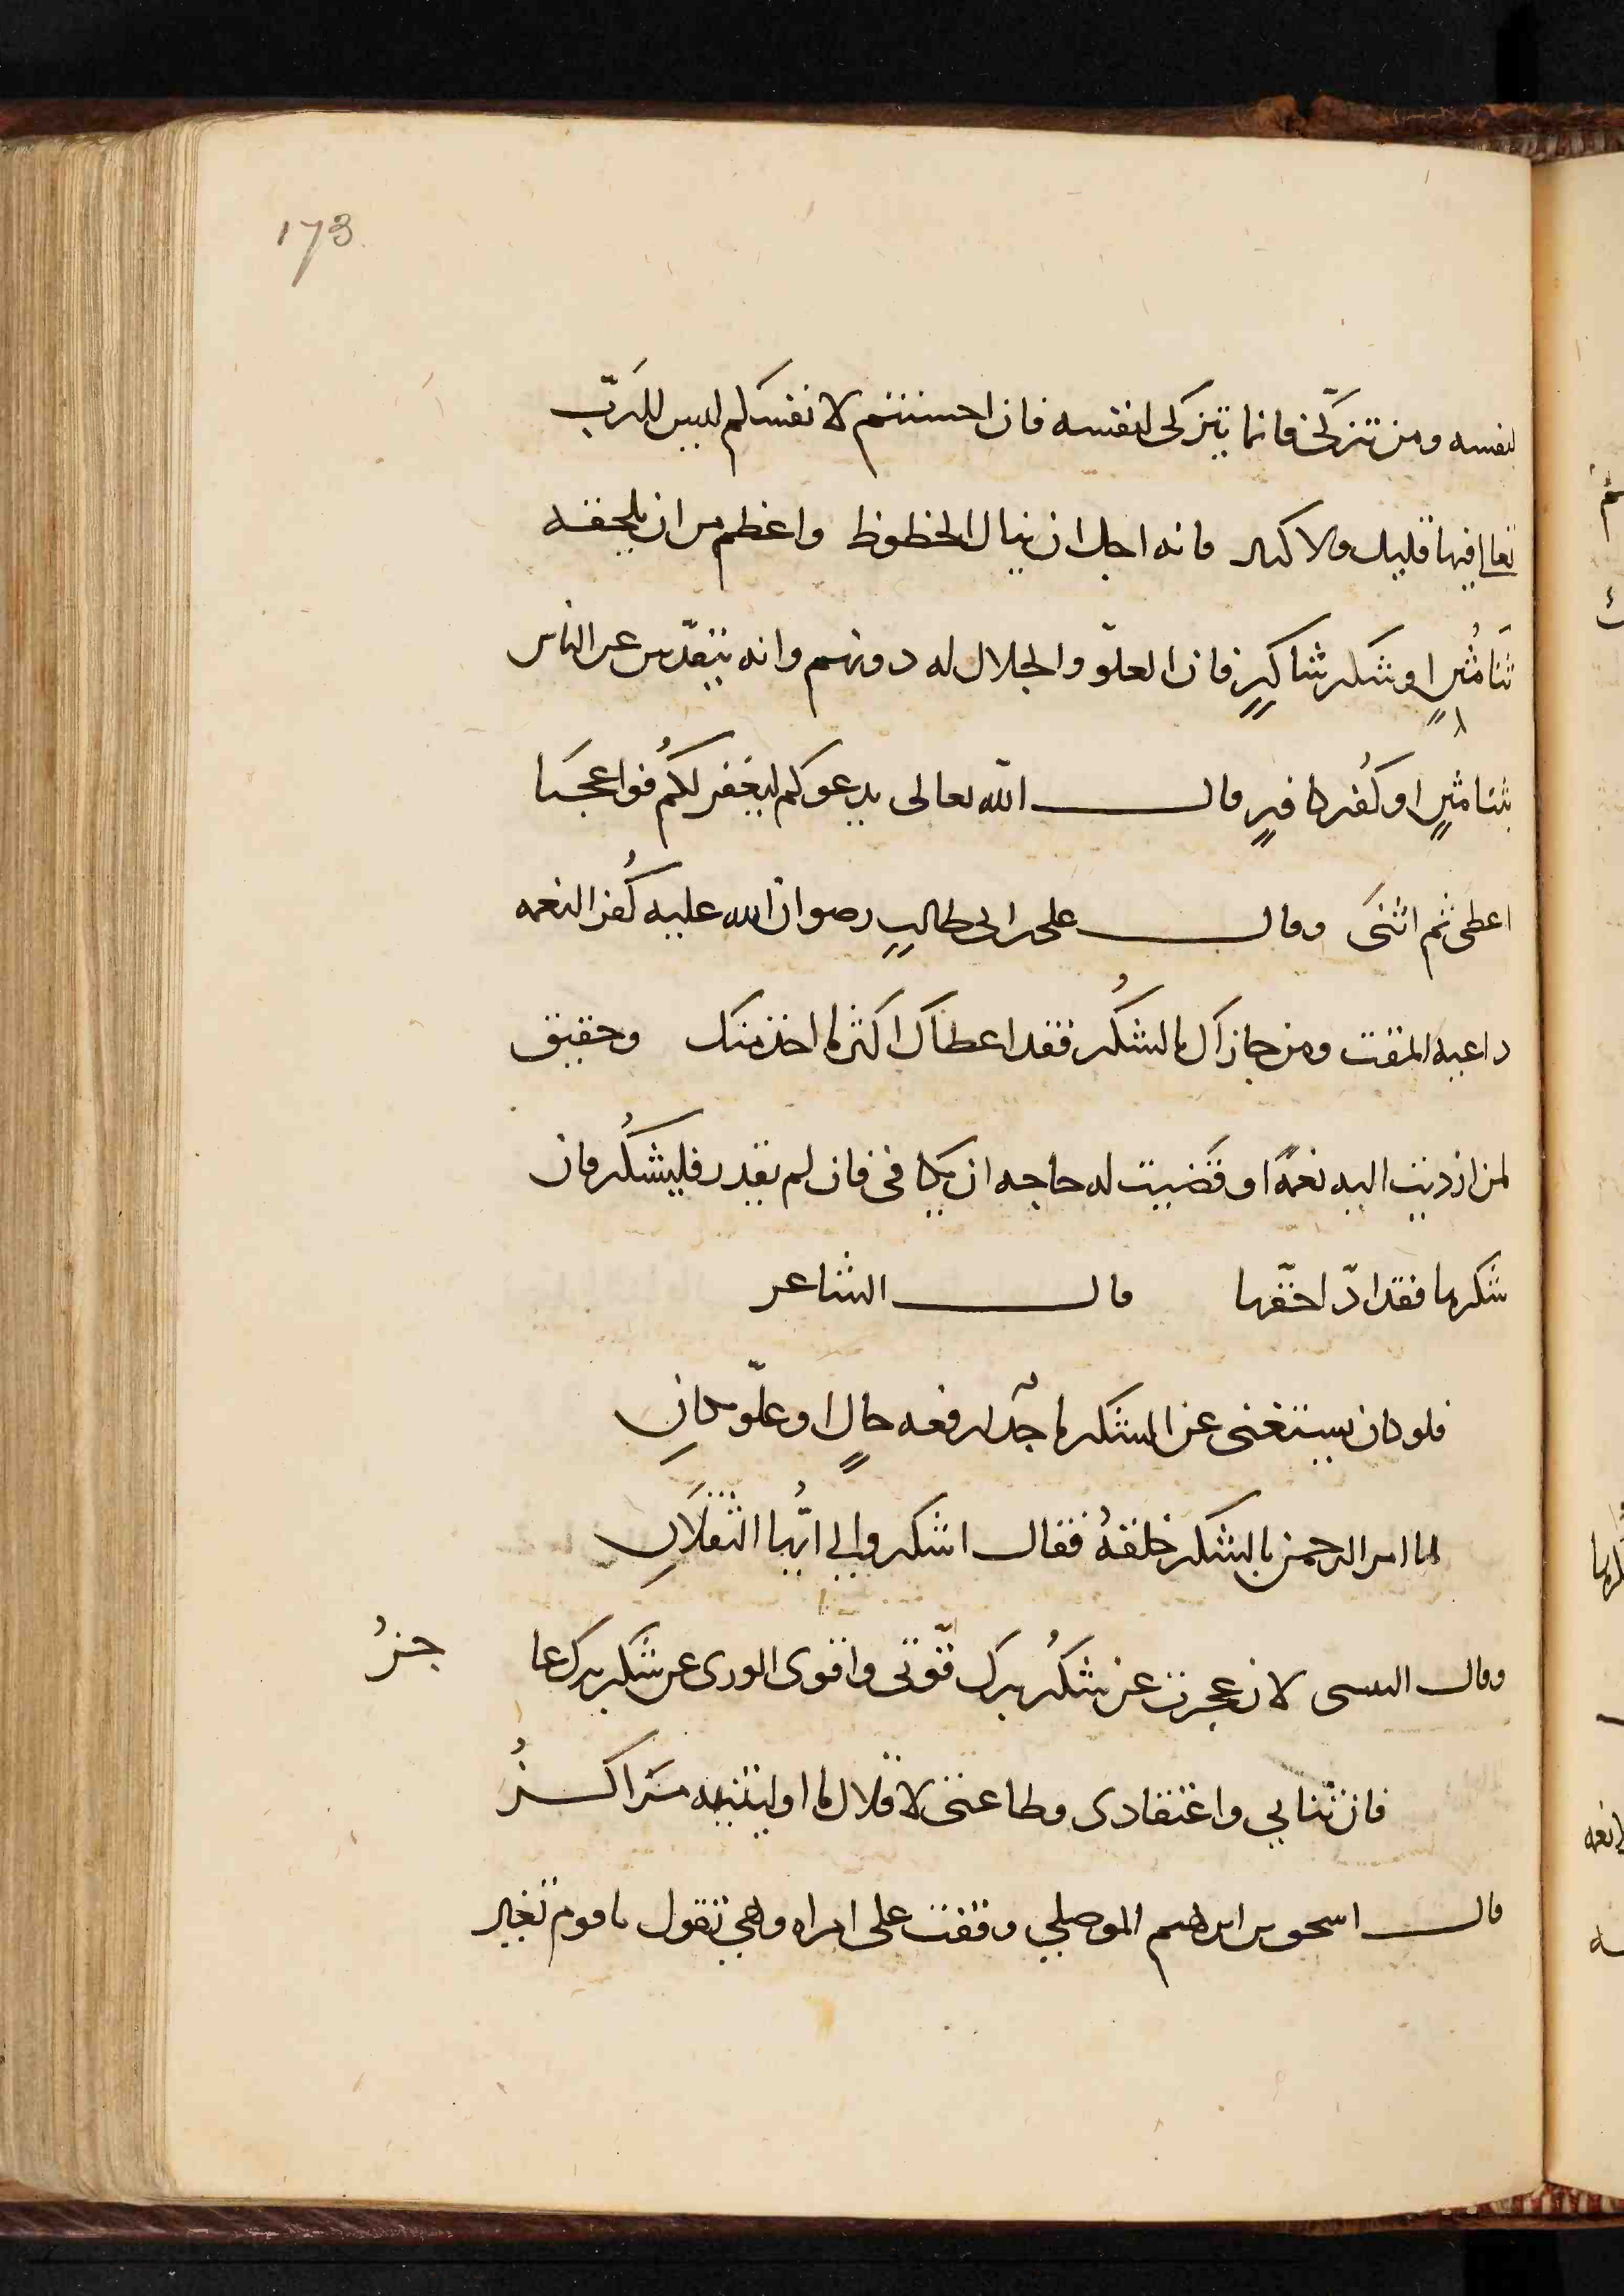 173
لنفسه ومن تزكّى فانما يتزكى لنفسه فان احسنتم لانفسكم ليس للربّ
تعالى فيها قليل ولا كثير فانه اجل ان ينال الحظوظ واعظم من ان يلحقه
ثَنا مُثنٍ او شكر شاكرٍ فان العلوّ والجلال له دونهم وانه يتقدّس عن الناس
بثنا مثنٍ او كُفر كافرٍ قال الله تعالى يدعوكم ليغفر لكُم فوا عجبَا
اعطى ثم اثنىَ وقال على بن ابى طالبٍ رضوان الله عليه كُفر النعمه
داعيه المقت ومن جازاك بالشكُر فقد اعطاك اكثر مما اخذ منك وحقيق
لمن ازديت اليه نعمةً او قَضيت له حاجه ان يكافى فان لم يقدر فليشكُر فان
شكرها فقد ادّا حقّها قال الشاعر
فلو كان يستغنى عن الشكر ماجدٌ لرفعه حالٍ او علّو مكانِ
لما امر الرحمن بالشكر خلقهُ فقال اشكروا لى ايُّها الثقلانِ
وقال لان عجزت عن شكُر برك قوّتى واقوى الورى عن شكر برك عا
جزُ
فان ثنايي واعتقادى وطاعتى لافلاك ما اوليتنيه مَراكزُ
قال اسحق بن ابرهيم الموصلي وقفت على امراه وهي تقول يا قوم تغير